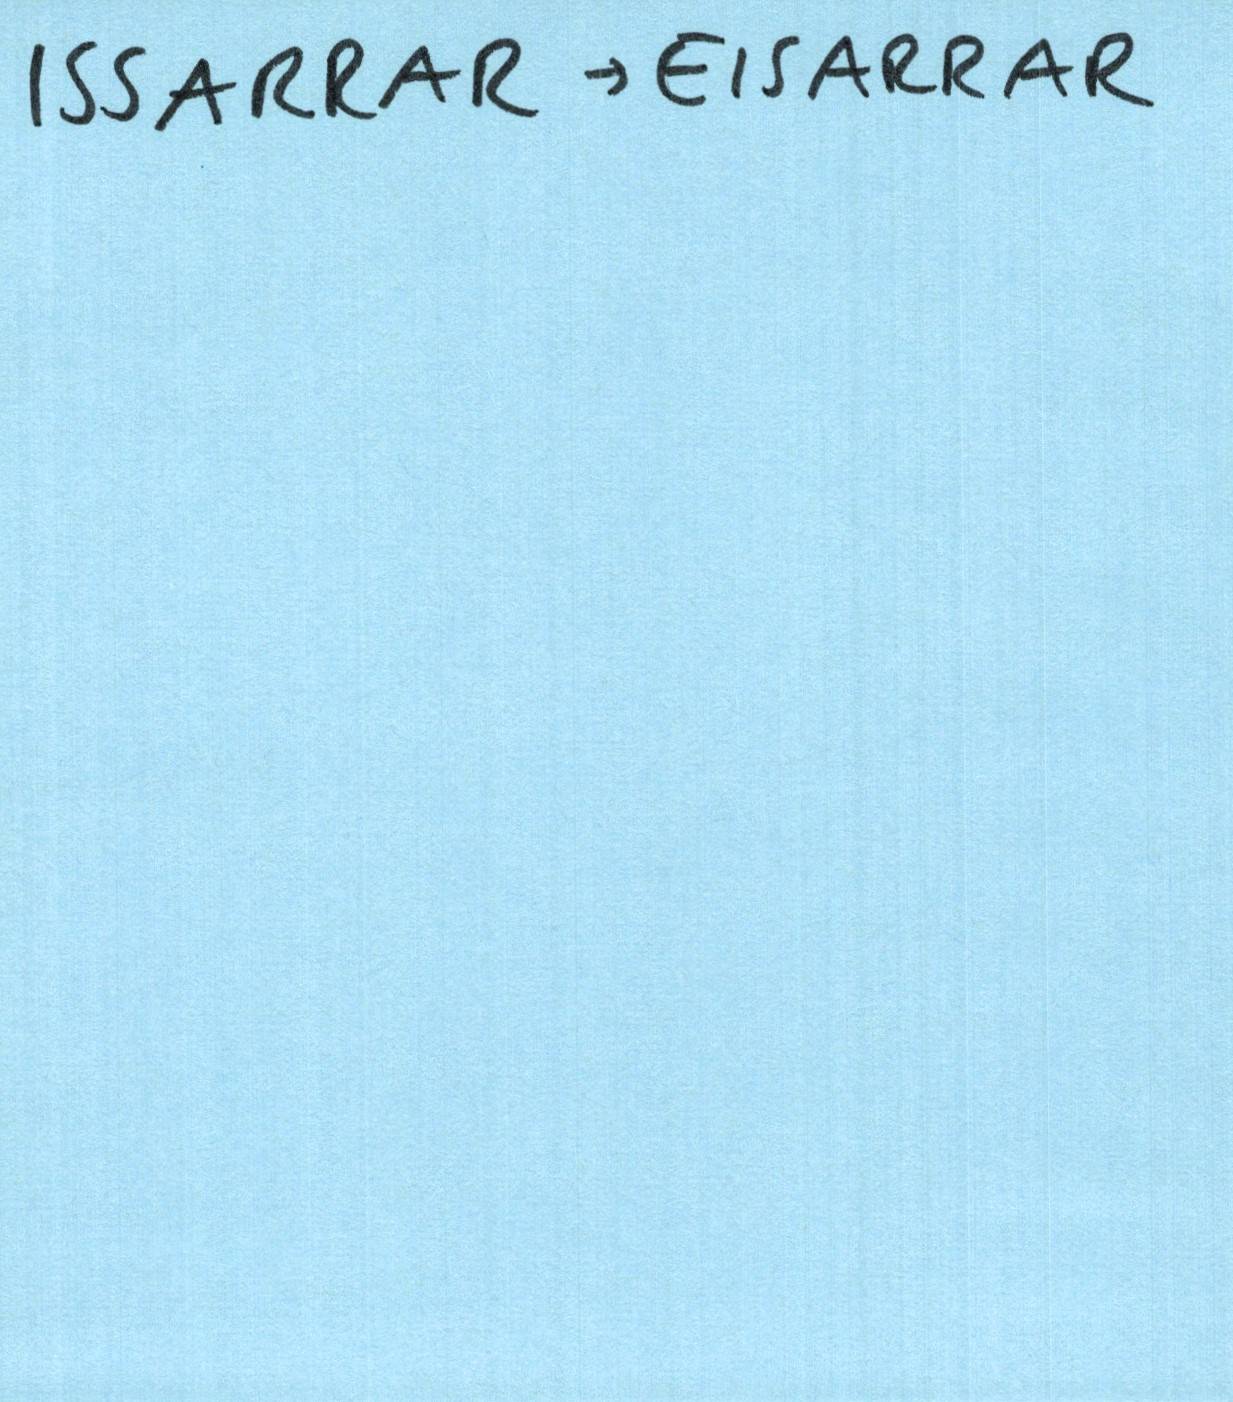 ISSARRAR → EISARRAR